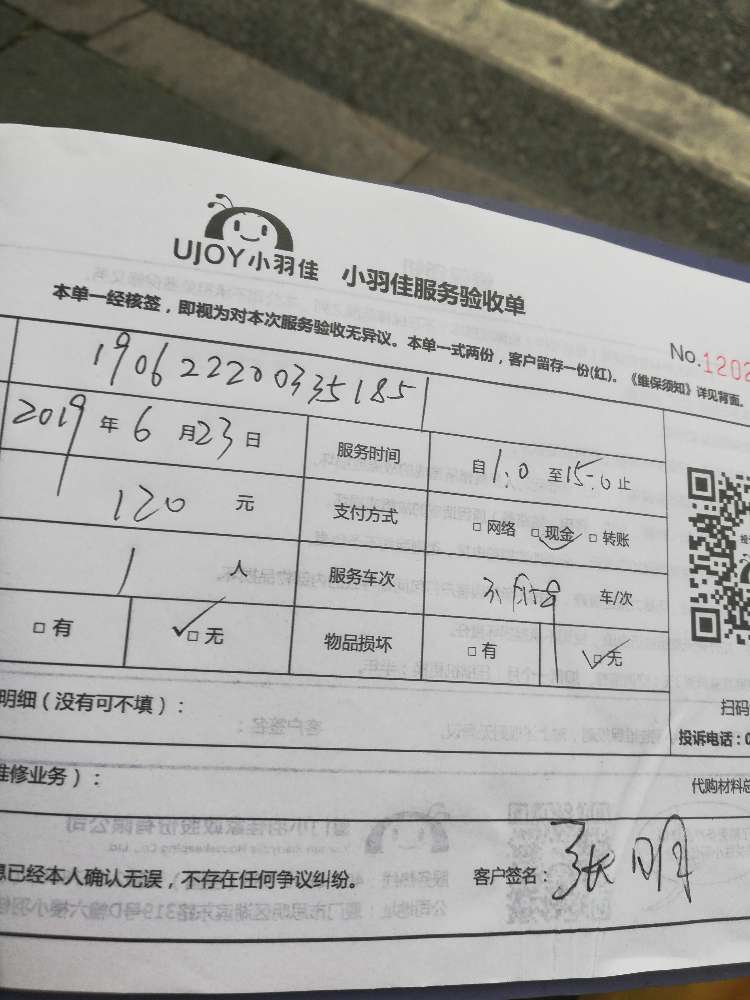 UJOY小羽佳 小羽佳服务验收单
本单一经核签，即视为对本次服务验收无异议。本单一式两份，客户留存一份(红)。《维保须知》详见背面。
No.1202
190622200335185
2019年6月23日 服务时间 自1:0至15:0止
120元 支付方式 □网络 □现金 □转账
1人 服务车次 车/次
□有 □无 物品损坏 □有 □无
扫码
明细（没有可不填）：
投诉电话：0
维修业务）：
代购材料总
息已经本人确认无误，不存在任何争议纠纷。 客户签名：张